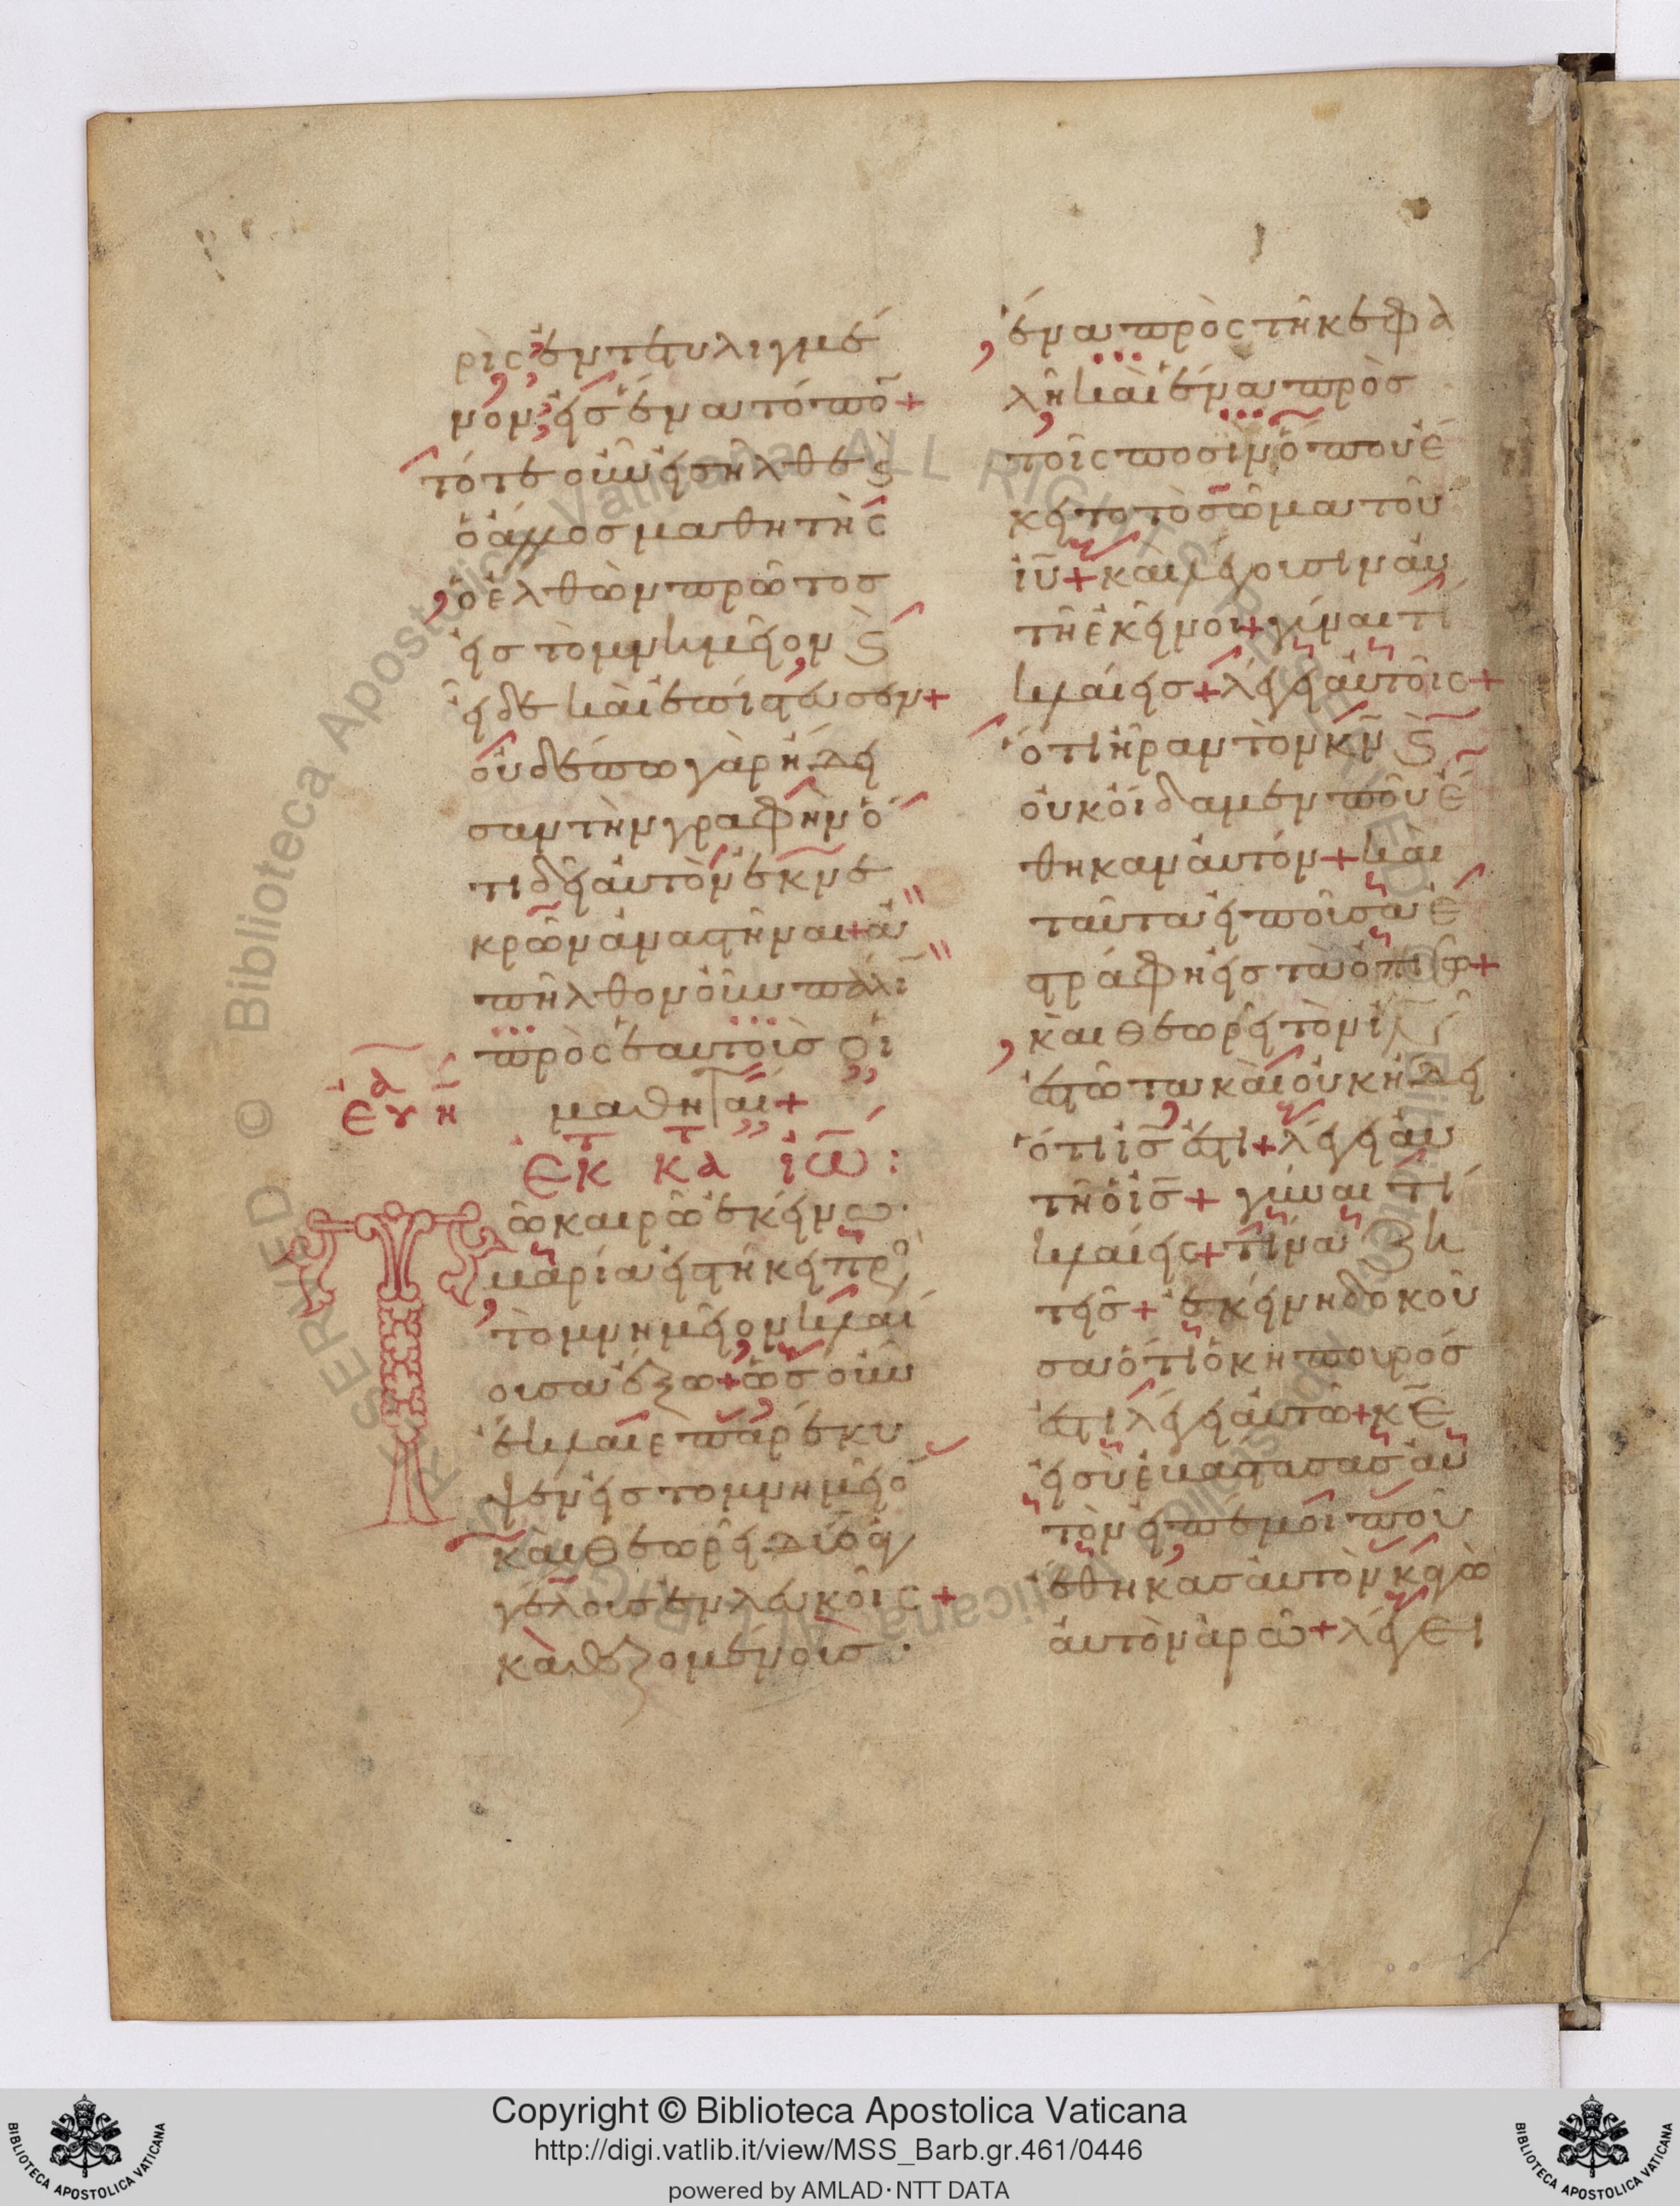 ρὶς ἐντετυλιγμέ
νον εἰς ἕνα τόπον +
τότε οὖν εἰσῆλθε ϗ
ὁ ἄλλος μαθητὴς
ὁ ἐλθὼν πρῶτος
εἰς τὸ μνημεῖον ϗ
εἶδε καὶ ἐπίστευσεν +
οὐδέπω γὰρ ᾔδει
σαν τὴν γραφὴν ὅ
τι δεῖ αὐτὸν ἐκ νε
κρῶν ἀναστῆναι + ἀ
πῆλθον οὖν πάλιν
πρὸς ἑαυτοὺς οἱ
μαθηταί +
ἑωθινὸν
ἐκ τ κατὰ ἰω :
Τῶ καιρῶ ἐκείνω ·
μαρία εἱστήκει πρὸ
τὸ μνημεῖον κλαί
ουσα ἔξω + ὡς οὖν
ἔκλαιε παρέκυ
ψεν εἰς το μνημεῖο
καὶ θεωρεῖ δύο ἀγ
γέλους ἐν λευκοῖς +
καθεζομένους ·
ἕνα πρὸς τῆ κεφα
λῆ καὶ ἕνα πρὸς
τοῖς ποσὶν ὅπου ἔ
κειτο τὸ σῶμα τοῦ
ἰυ + καὶ λέγουσιν αὐ
τῆ ἐκεῖνοι + γύναι τί
κλαίεις + λέγει αὐτοῖς +
ὅτι ἦραν τὸν κν ϗ
οὐκ οἶδαμεν ποῦ ἔ
θηκαν αὐτόν + καὶ
ταῦτα εἰποῦσα ἐ
στράφη εἰς τὰ ὀπίσω +
καὶ θεωρεῖ τὸν ιν
ἑστῶτα καὶ οὐκ ᾔδει
ὅτι ις ἐστι + λέγει αὐ
τῆ ὁ ις + γύναι τί
κλαίεις + τίνα ζη
τεῖς + ἐκείνη δοκοῦ
σα ὅτι ὁ κηπουρός
ἐστι λέγει αὐτῶ + κε
εἰ σὺ ἐβάστασας αὐ
τὸν εἰπέ μοι ποῦ
ἔθηκας αὐτὸν κἀγὼ
αὐτὸν ἀρῶ + λέγει
© Biblioteca Apostolica Vaticana ALL RIGHTS RESERVED
Copyright © Biblioteca Apostolica Vaticana
http://digi.vatlib.it/view/MSS_Barb.gr.461/0446
powered by AMLAD·NTT DATA
BIBLIOTECA APOSTOLICA VATICANA
BIBLIOTECA APOSTOLICA VATICANA